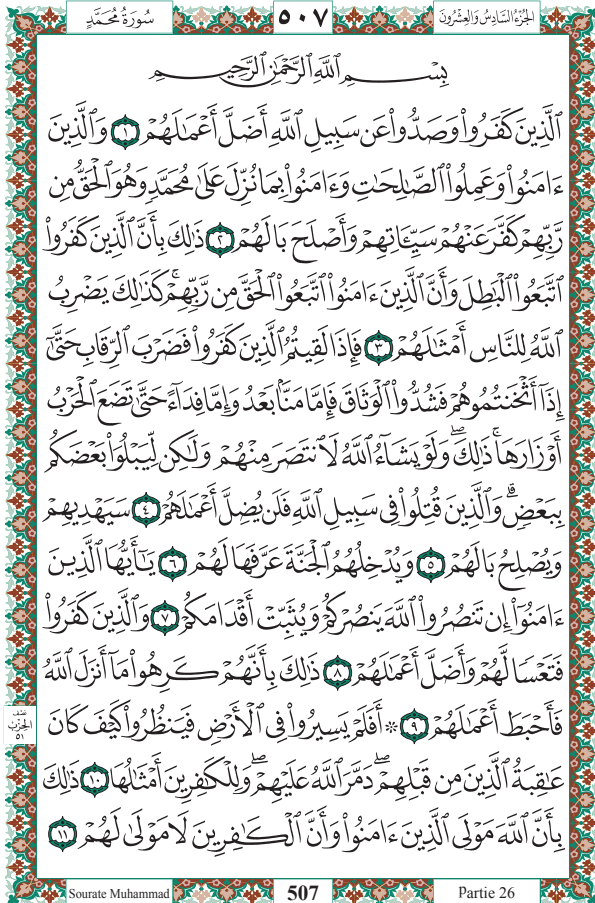 سُورَةُ مُحَمَّدٍ ٥٠٧ الجُزْءُ السَّادِسُ وَالعِشْرُونَ
بِسْمِ ٱللَّهِ ٱلرَّحْمَٰنِ ٱلرَّحِيمِ
ٱلَّذِينَ كَفَرُوا۟ وَصَدُّوا۟ عَن سَبِيلِ ٱللَّهِ أَضَلَّ أَعْمَٰلَهُمْ ١ وَٱلَّذِينَ
ءَامَنُوا۟ وَعَمِلُوا۟ ٱلصَّٰلِحَٰتِ وَءَامَنُوا۟ بِمَا نُزِّلَ عَلَىٰ مُحَمَّدٍ وَهُوَ ٱلْحَقُّ مِن
رَّبِّهِمْ كَفَّرَ عَنْهُمْ سَيِّـَٔاتِهِمْ وَأَصْلَحَ بَالَهُمْ ٢ ذَٰلِكَ بِأَنَّ ٱلَّذِينَ كَفَرُوا۟
ٱتَّبَعُوا۟ ٱلْبَٰطِلَ وَأَنَّ ٱلَّذِينَ ءَامَنُوا۟ ٱتَّبَعُوا۟ ٱلْحَقَّ مِن رَّبِّهِمْ ۚ كَذَٰلِكَ يَضْرِبُ
ٱللَّهُ لِلنَّاسِ أَمْثَٰلَهُمْ ٣ فَإِذَا لَقِيتُمُ ٱلَّذِينَ كَفَرُوا۟ فَضَرْبَ ٱلرِّقَابِ حَتَّىٰٓ
إِذَآ أَثْخَنتُمُوهُمْ فَشُدُّوا۟ ٱلْوَثَاقَ فَإِمَّا مَنًّۢا بَعْدُ وَإِمَّا فِدَآءً حَتَّىٰ تَضَعَ ٱلْحَرْبُ
أَوْزَارَهَا ۚ ذَٰلِكَ ۖ وَلَوْ يَشَآءُ ٱللَّهُ لَٱنتَصَرَ مِنْهُمْ وَلَٰكِن لِّيَبْلُوَا۟ بَعْضَكُم
بِبَعْضٍ ۗ وَٱلَّذِينَ قُتِلُوا۟ فِى سَبِيلِ ٱللَّهِ فَلَن يُضِلَّ أَعْمَٰلَهُمْ ٤ سَيَهْدِيهِمْ
وَيُصْلِحُ بَالَهُمْ ٥ وَيُدْخِلُهُمُ ٱلْجَنَّةَ عَرَّفَهَا لَهُمْ ٦ يَٰٓأَيُّهَا ٱلَّذِينَ
ءَامَنُوٓا۟ إِن تَنصُرُوا۟ ٱللَّهَ يَنصُرْكُمْ وَيُثَبِّتْ أَقْدَامَكُمْ ٧ وَٱلَّذِينَ كَفَرُوا۟
فَتَعْسًا لَّهُمْ وَأَضَلَّ أَعْمَٰلَهُمْ ٨ ذَٰلِكَ بِأَنَّهُمْ كَرِهُوا۟ مَآ أَنزَلَ ٱللَّهُ
فَأَحْبَطَ أَعْمَٰلَهُمْ ٩ ۞ أَفَلَمْ يَسِيرُوا۟ فِى ٱلْأَرْضِ فَيَنظُرُوا۟ كَيْفَ كَانَ
عَٰقِبَةُ ٱلَّذِينَ مِن قَبْلِهِمْ ۖ دَمَّرَ ٱللَّهُ عَلَيْهِمْ ۖ وَلِلْكَٰفِرِينَ أَمْثَٰلُهَا ١٠ ذَٰلِكَ
بِأَنَّ ٱللَّهَ مَوْلَى ٱلَّذِينَ ءَامَنُوا۟ وَأَنَّ ٱلْكَٰفِرِينَ لَا مَوْلَىٰ لَهُمْ ١١
نصف
الحِزْبِ
٥١
Sourate Muhammad 507 Partie 26